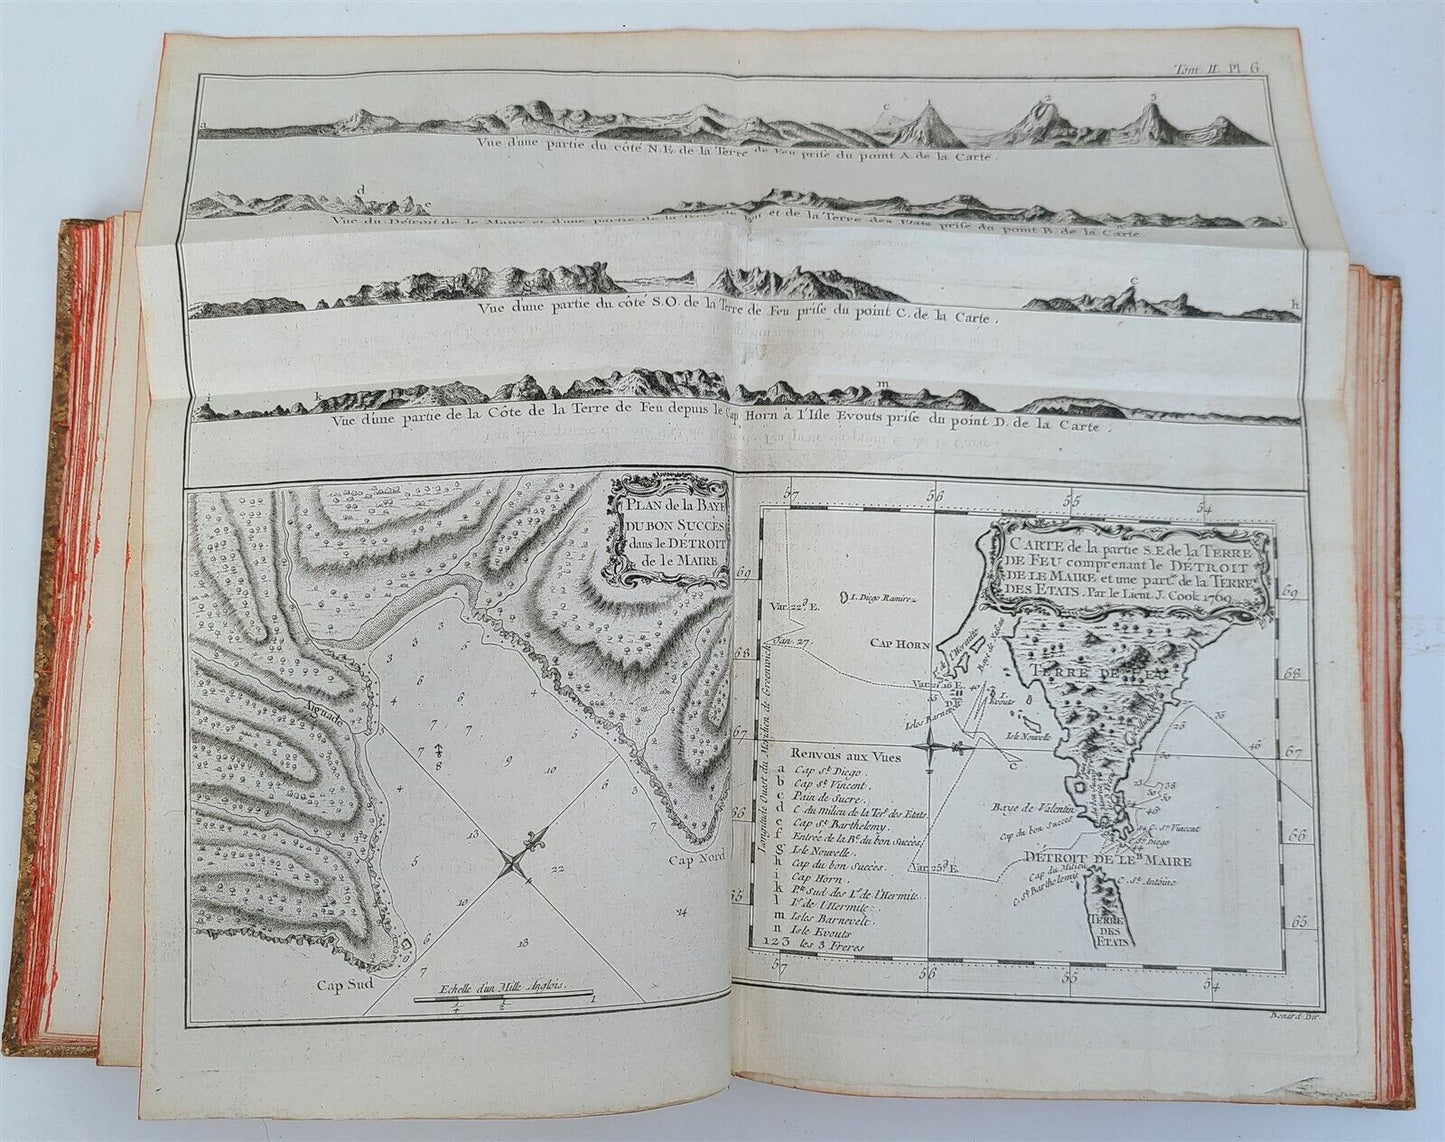 Tom. II. Pl. 6.
a c 1 2 3
Vue d'une partie du côté N.E. de la Terre de Feu prise du point A. de la Carte.
d e
Vue du Détroit de le Maire et d'une partie de la Terre de Feu et de la Terre des Etats prise du point B. de la Carte.
g c h
Vue d'une partie du côté S.O. de la Terre de Feu prise du point C. de la Carte.
i k m
Vue d'une partie de la Côte de la Terre de Feu depuis le Cap Horn à l'Isle Evouts prise du point D. de la Carte.
PLAN de la BAYE
DU BON SUCCÈS
dans le DETROIT
de le MAIRE
Aiguade
Cap Nord
Cap Sud
3 3 3 5
4 6 5
4 7 7 3
7 9 10
8
13 7
5 22
10 14
13
6
7
Echelle d'un Mille Anglois.
1/4 1/2 1
57 56 55 54
CARTE de la partie S.E. de la TERRE
DE FEU comprenant le DÉTROIT
DE LE MAIRE et une part.ᵉ de la TERRE
DES ETATS. Par le Lieut. J. Cook 1769.
69 69
68 68
67 67
66 66
65 65
I. Diego Ramirez
Var. 22ᵈ E.
Jan. 27
CAP HORN
I. de l'Hermite
Var. 21.16 E.
Isles Barnevelt
I. Evouts
Isle Nouvelle
C
TERRE DE FEU
Longitude Ouest du Meridien de Greenwich
Baye de Valentin
Cap du bon Succès
C. Sᵗ Vincent
C. Sᵗ Diego
DÉTROIT DE LE MAIRE
B
Cap du Milieu
C. Sᵗ Barthelemy
C. Sᵗ Antoine
Var. 25ᵈ E.
TERRE
DES
ETATS
Renvois aux Vues
a Cap Sᵗ Diego.
b Cap Sᵗ Vincent.
c Pain de Sucre.
d C. du milieu de la Terᵉ des Etats.
e Cap Sᵗ Barthelemy.
f Entrée de la Bᵉ du bon Succès.
g Isle Nouvelle.
h Cap du bon Succès.
i Cap Horn.
k Pᵗᵉ Sud des Iˢ de l'Hermite.
l Iˢ de l'Hermite.
m Isles Barnevelt.
n Isle Evouts
1 2 3 les 3 Freres
57 56 55 54
Benard Dir.